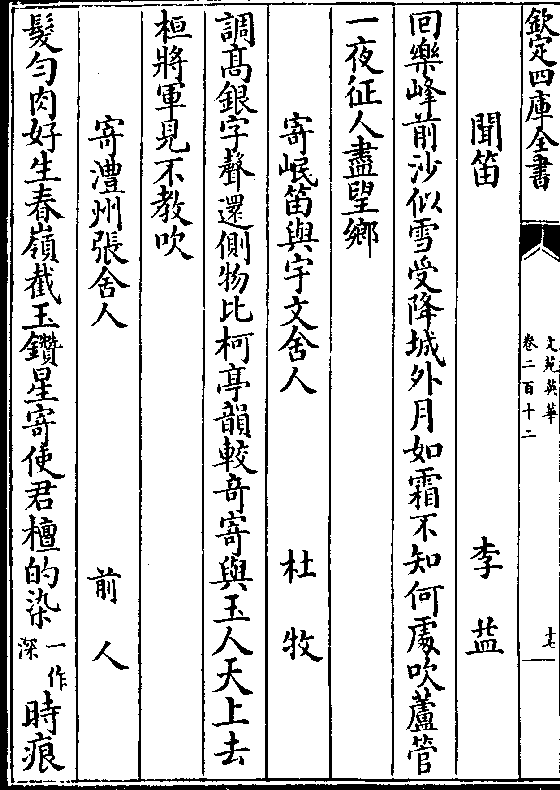 欽定四庫全書
文苑英華
卷二百十二
十七
聞笛 李益
囘樂峰前沙似雪受降城外月如霜不知何處吹蘆管
一夜征人盡望鄉
寄岷笛與宇文舍人 杜牧
調髙銀字聲還側物比柯亭韻較竒寄與玉人天上去
桓將軍見不教吹
寄澧州張舍人 前人
髮勻肉好生春嶺截玉鑽星寄使君檀的染一作深時痕